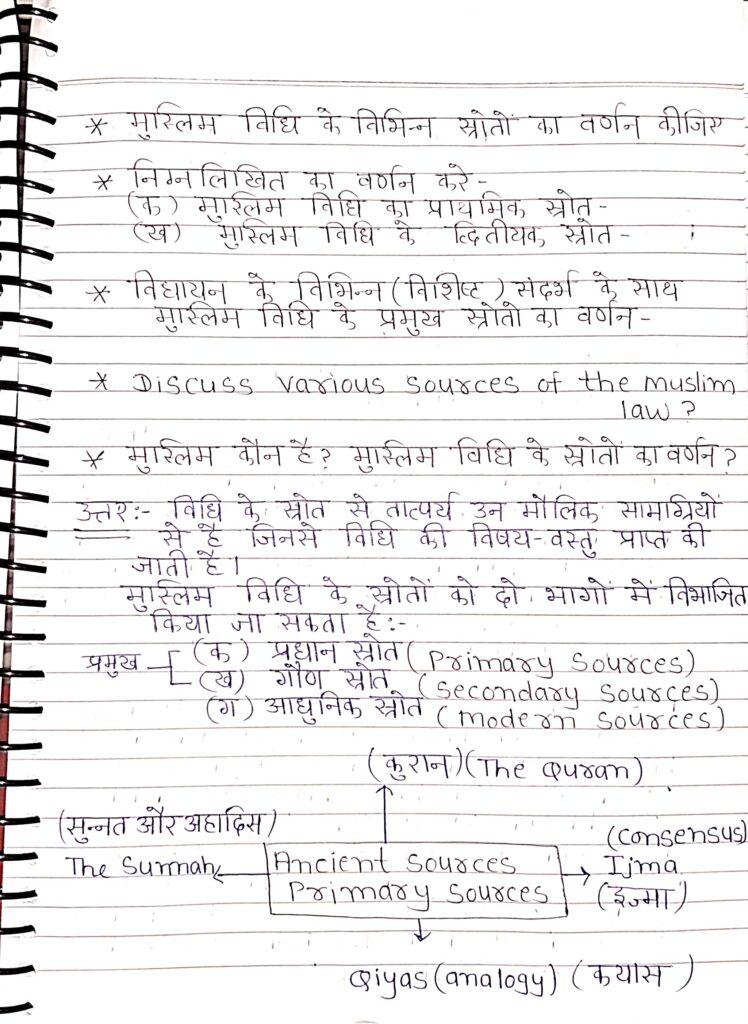 * मुस्लिम विधि के विभिन्न स्रोतों का वर्णन कीजिए
* निम्नलिखित का वर्णन करे -
(क) मुस्लिम विधि का प्राथमिक स्रोत -
(ख) मुस्लिम विधि के द्वितीयक स्रोत -
* विधायन के विभिन्न (विशिष्ट) संदर्भ के साथ
मुस्लिम विधि के प्रमुख स्रोतो का वर्णन -
* Discuss various sources of the muslim
law ?
* मुस्लिम कौन है? मुस्लिम विधि के स्रोतों का वर्णन ?
उत्तर:- विधि के स्रोत से तात्पर्य उन मौलिक सामग्रियों
से है जिनसे विधि की विषय-वस्तु प्राप्त की
जाती है।
मुस्लिम विधि के स्रोतों को दो भागों में विभाजित
किया जा सकता है:-
प्रमुख (क) प्रधान स्रोत (Primary Sources)
(ख) गौण स्रोत (Secondary Sources)
(ग) आधुनिक स्रोत (Modern Sources)
(कुरान) (The Quran)
(सुन्नत और अहादिस)
The Sunnah
Ancient Sources
Primary Sources
(Consensus)
Ijma
(इज्मा)
Qiyas (analogy) (कयास)